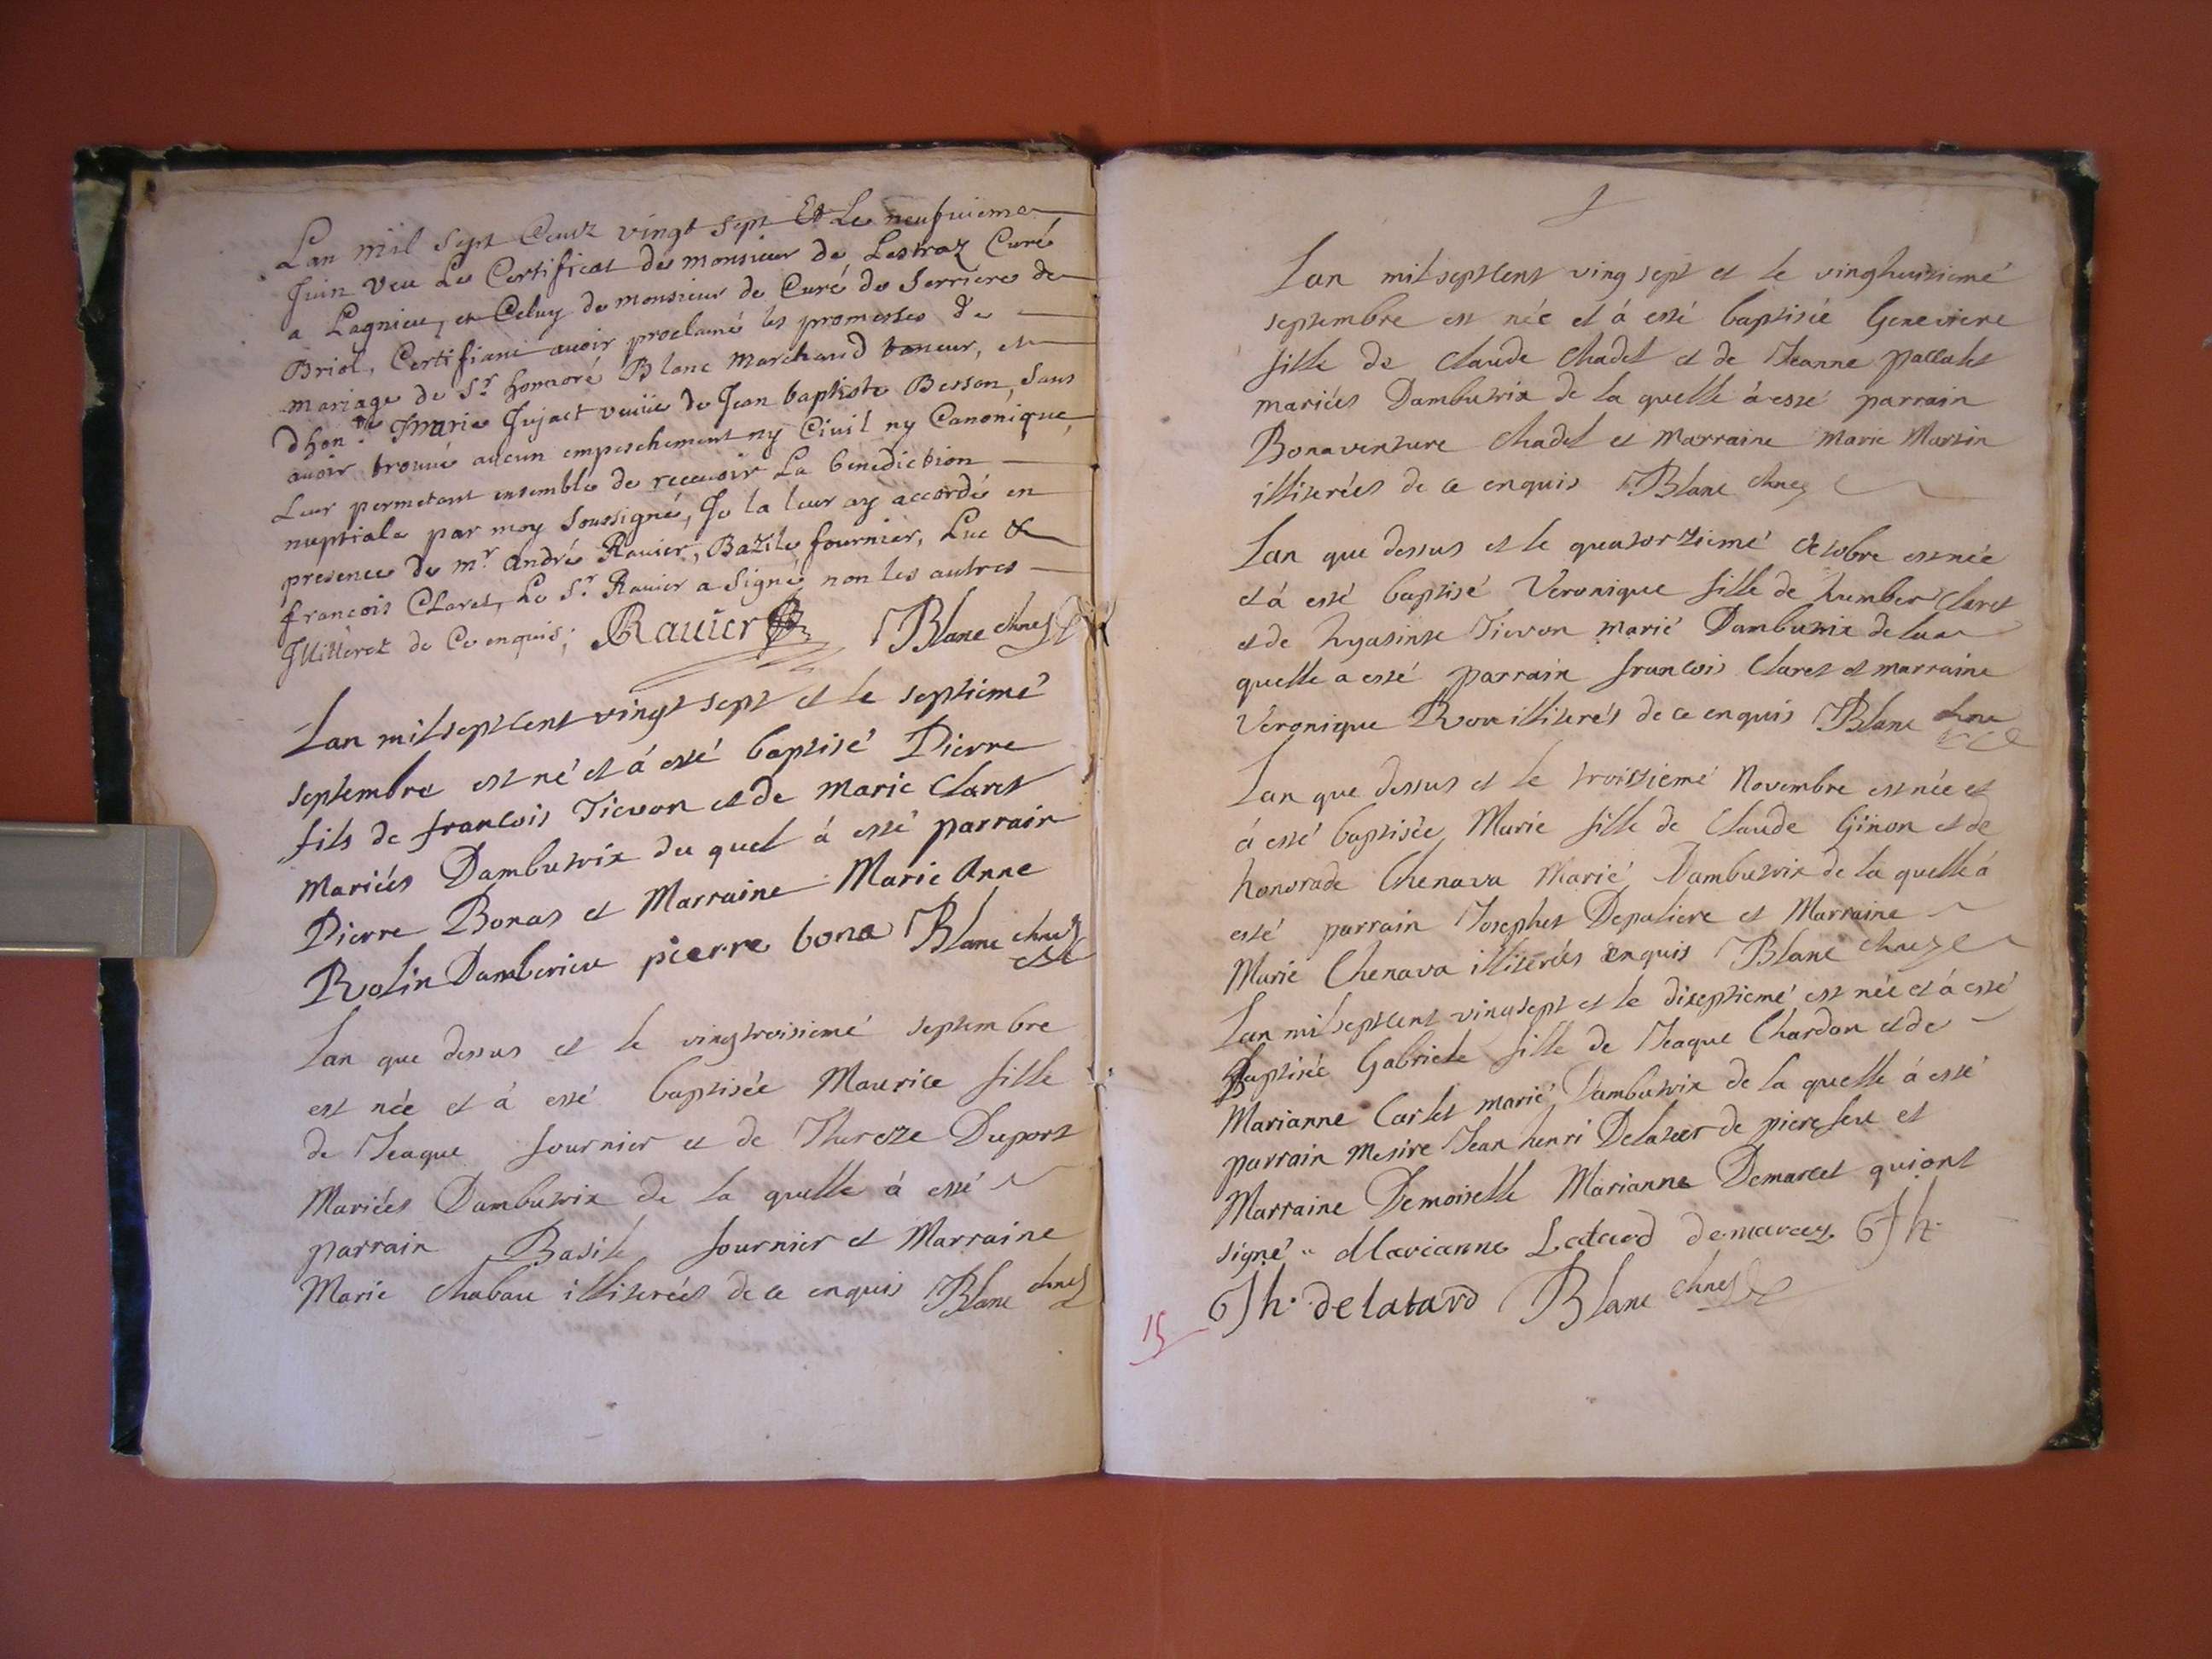 Lan mil sept Centz vingt sept Et Le neufuieme
Juin Veu Le Certificat de monsieur de Lestraz Curé
a Lagnieu, et Celuy de monsieur de Curé de Serriere de
Briol, Certifiant auoir proclamé les promesses de
mariage de Sr. honnoré Blanc Marchand tanneur, et
dhon.ble Marie Jujact veuüe de Jean baptiste Besson, Sans
auoir trouué aucun empeschement ny Ciuil ny Canonique,
Leur permetant ensemble de receuoir La benediction
nuptiale par moy Soussigné, Je la leur ay accordé en
presence de mr. andré Rauier, Bazile fournier, Luc &
francois Claret, Le Sr. Rauier a Signé non les autres
Jlliteret de Ce enquis; Rauier Blanc
Lan mil sept Cent vingt sept et le septiemé
septembre est né et á esté baptisé Pierre
fils de francois Tievon et de Marie Claret
Mariés Dambutrix du quel á esté parrain
Pierre Bonas et Marraine Marie Anne
Rolin Damberieu pierre bona Blanc
Lan que dessus et le vingtroisiemé septembre
est née et á esté baptisée Maurice fille
de Jeaque fournier et de Thereze Duport
Mariées Dambutrix de la quelle á esté
parrain Basile fournier et Marraine
Marie Chabau illiterées de ce enquis Blanc
Lan mil sept Cent ving sept et le vinghuitiemé
septembre est née et á esté baptisée Genevieve
fille de Claude Chadel et de Jeanne pallalet
mariées Dambutrix de la quelle á esté parrain
Bonaventure Chadel et Marraine Marie Martin
illiterées de ce enquis Blanc
Lan que dessus et le quatortziemé Octobre est née
et á esté baptisé Veronique fille de humber Claret
et de hyasinte Tievon marié Dambutrix de la
quelle a esté parrain francois Claret et marraine
Veronique Rou illiterés de ce enquis Blanc
Lan que dessus et le troitziemé Novembre est née et
á esté baptisée Marie fille de Claude Ginon et de
honorade Chenava Marié Dambutrix de la quelle á
esté parrain Josephet Depaliere et Marraine
Marie Chenava illiterées enquis Blanc
Lan mil sept Cent vingsept et le diseptiemé est née et á esté
Baptisée Gabriele fille de Jeaque Chardon et de
Marianne Carlet marié Dambutrix de la quelle á esté
parrain Mesire Jean henri Delateer de piere feu et
Marraine Demoiselle Marianne Demarcel qui ont
signé Marianne Latard demarcez Jh
Jh. delatard Blanc
15